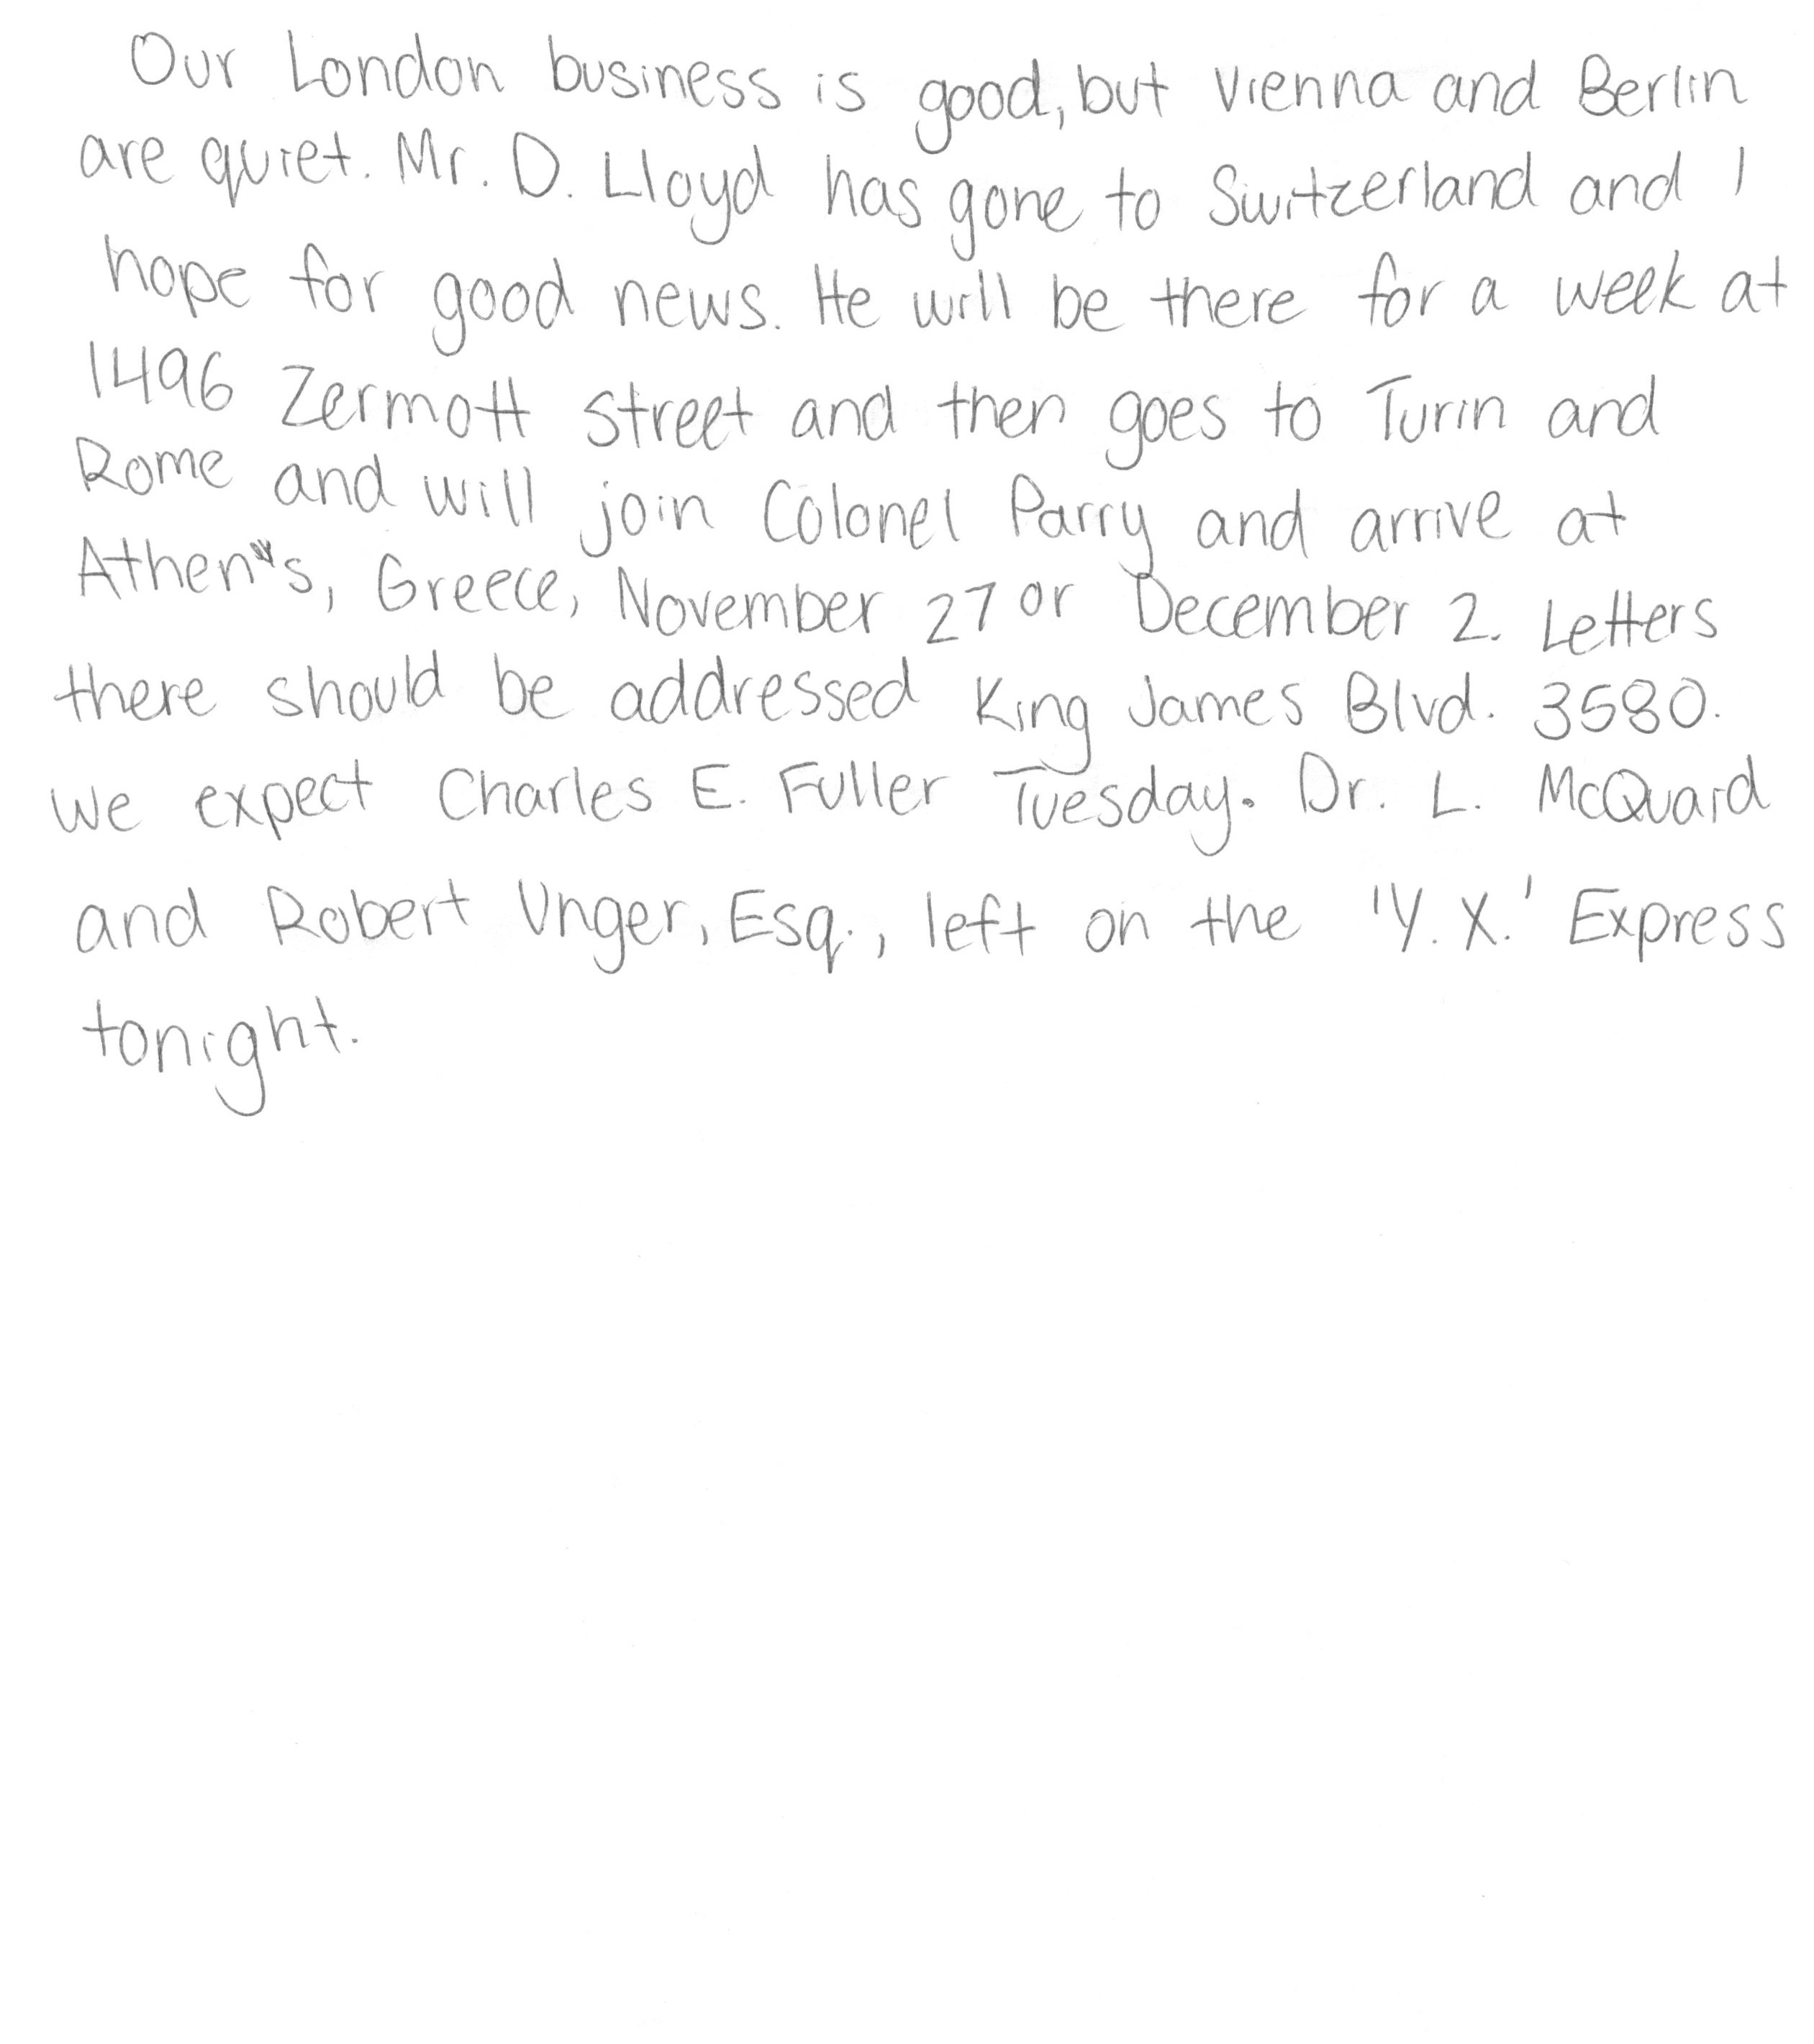 Our London business is good, but Vienna and Berlin
are quiet. Mr. D. Lloyd has gone to Switzerland and I
hope for good news. He will be there for a week at
1496 Zermott street and then goes to Turin and
Rome and will join Colonel Parry and arrive at
Athens, Greece, November 27 or December 2. Letters
there should be addressed King James Blvd. 3580.
We expect Charles E. Fuller Tuesday. Dr. L. McQuaid
and Robert Unger, Esq., left on the 'Y. X.' Express
tonight.